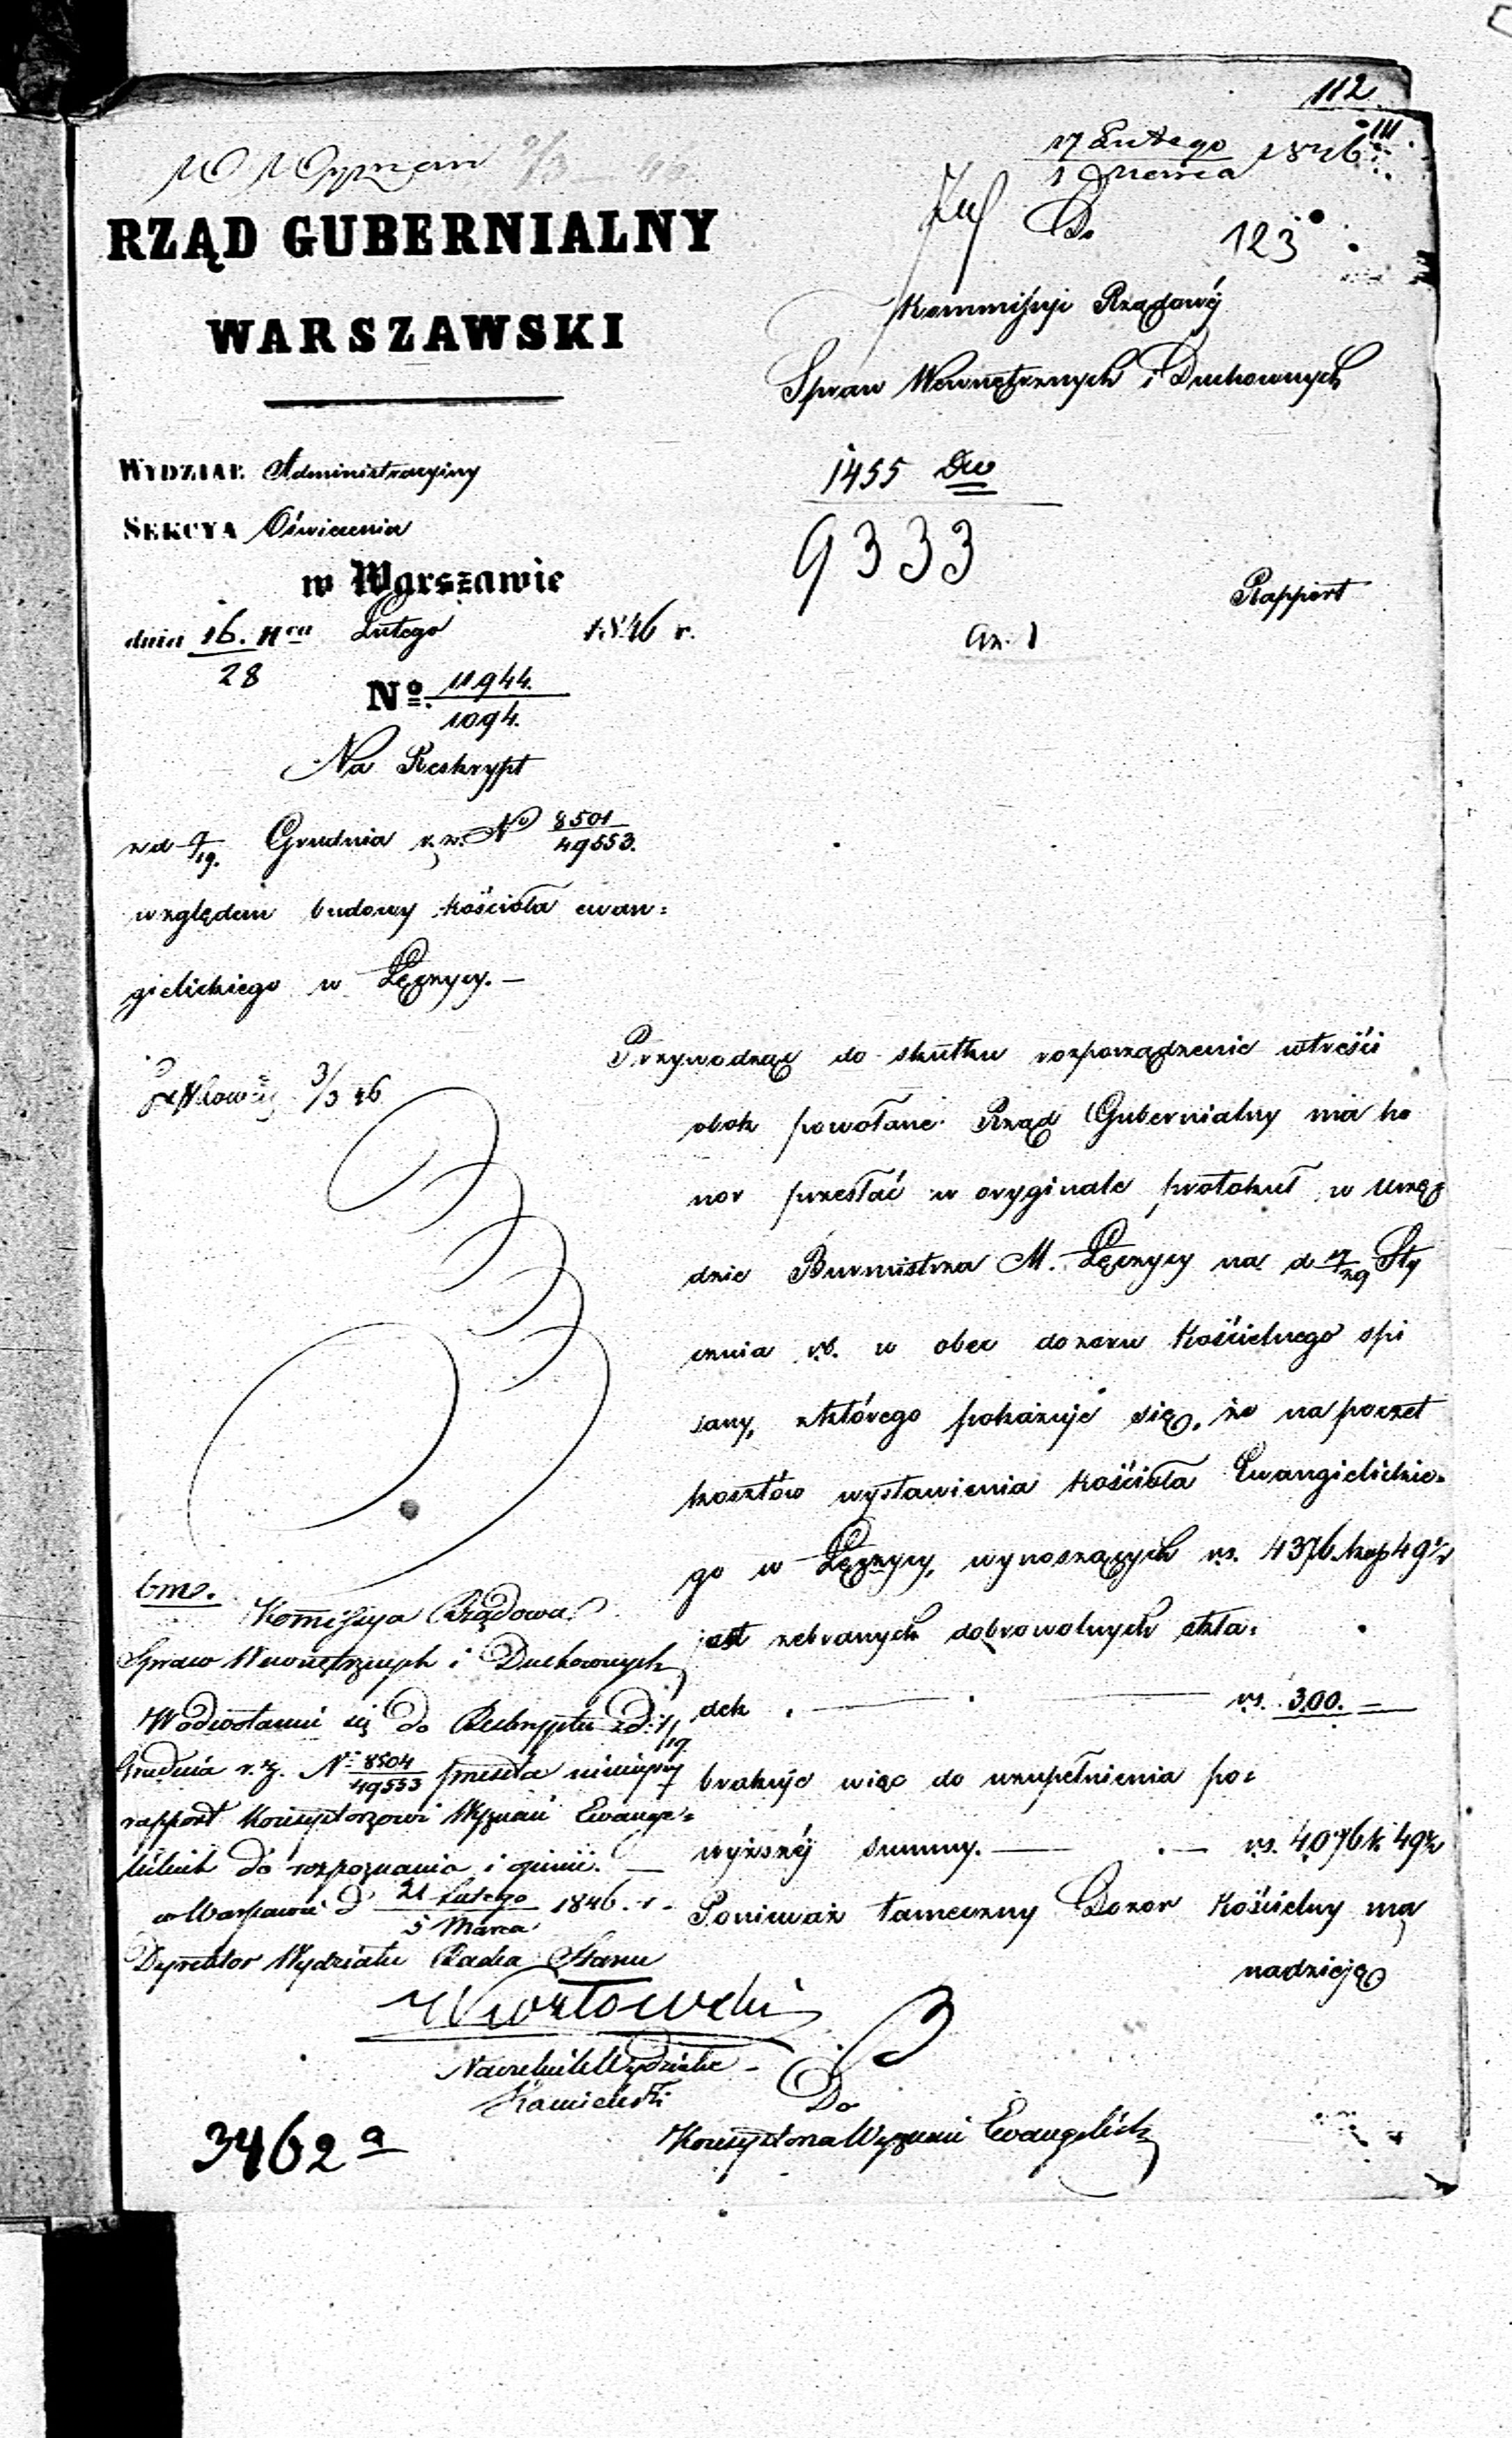 112
111
17 Lutego
1 Marca 1846
W Wyznań 9/3
RZĄD GUBERNIALNY
WARSZAWSKI
123
Kommissyi Rządowéj
Spraw Wewnętrznych i Duchownych
WYDZIAŁ Administracyiny
SEKCYA Oświecenia
w Warszawie
dnia 16./28 Lutego 1846 r.
No. 11944./1094.
1455 Dw
9333
Rapport
Na Reskrypt
z d 7/19. Grudnia r. z. No 8501/49553.
względem budowy kościoła ewan=
gielickiego w Łęczycy. —
3/3 46
Przywodząc do skutku rozporządzenie w treści
obok powołane Rząd Gubernialny ma ho
nor przesłać w oryginale protokuł w Urzę
dzie Burmistrza M. Łęczycy na d 17/29 Sty
cznia r.b. w obec dozoru Kościelnego spi
sany, z którego pokazuje się, że na poczet
kosztów wystawienia Kościoła Ewangielickie=
go w Łęczycy, wynoszących rs. 4376. kop 49½
jest zebranych dobrowolnych skła=
dek . — rs. 300. =
brakuje więc do uzupełnienia po=
wyższéj summy. — rs. 4076 k 49½
Ponieważ tameczny Dozor Kościelny ma
nadzieję
bmo.
Komissya Rządowa
Spraw Wewnętrznych i Duchownych
W odwołaniu się do Reskryptu z d. 7/19
Grudnia r. z. No 8504/49553 przesyła niniejszy
rapport Konsystorzowi Wyznań Ewange=
lickich do rozpoznania i opinii. —
w Warszawie d 21 Lutego/5 Marca 1846. r.
Dyrektor Wydziału Radca Stanu
Naczelnik Wydziału
Do
Konsystorza Wyznań Ewangelickich
3462 a